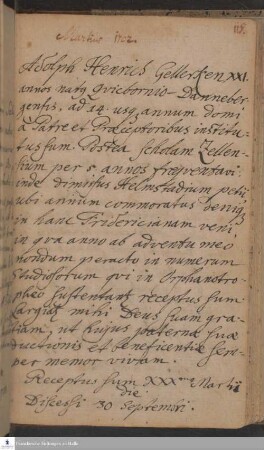 117.
Adolph Henrich Gellerßen XXI.
annos natq Qviebornio-Danneber-
gensis, ad 14. usq annum domi
a Patre et Præceptoribus institu-
tus sum. Postea scholam Zellen-
sium per 5. annos freqventavi:
inde dimissus Helmstadium petij
ubi annum commoratus deniq
in hanc Fridericianam veni,
in qva anno ab adventu meo
nondum peracto in numerum
studiosorum qvi in Orphanotro-
pheo sustentant receptus sum
Largiat mihi Deus suam gra-
tiam, ut hujus paternæ suæ
ductionis et beneficentiæ sem-
per memor vivam.
Receptus sum XXX Martij
die
Discessi 30 Septembr.